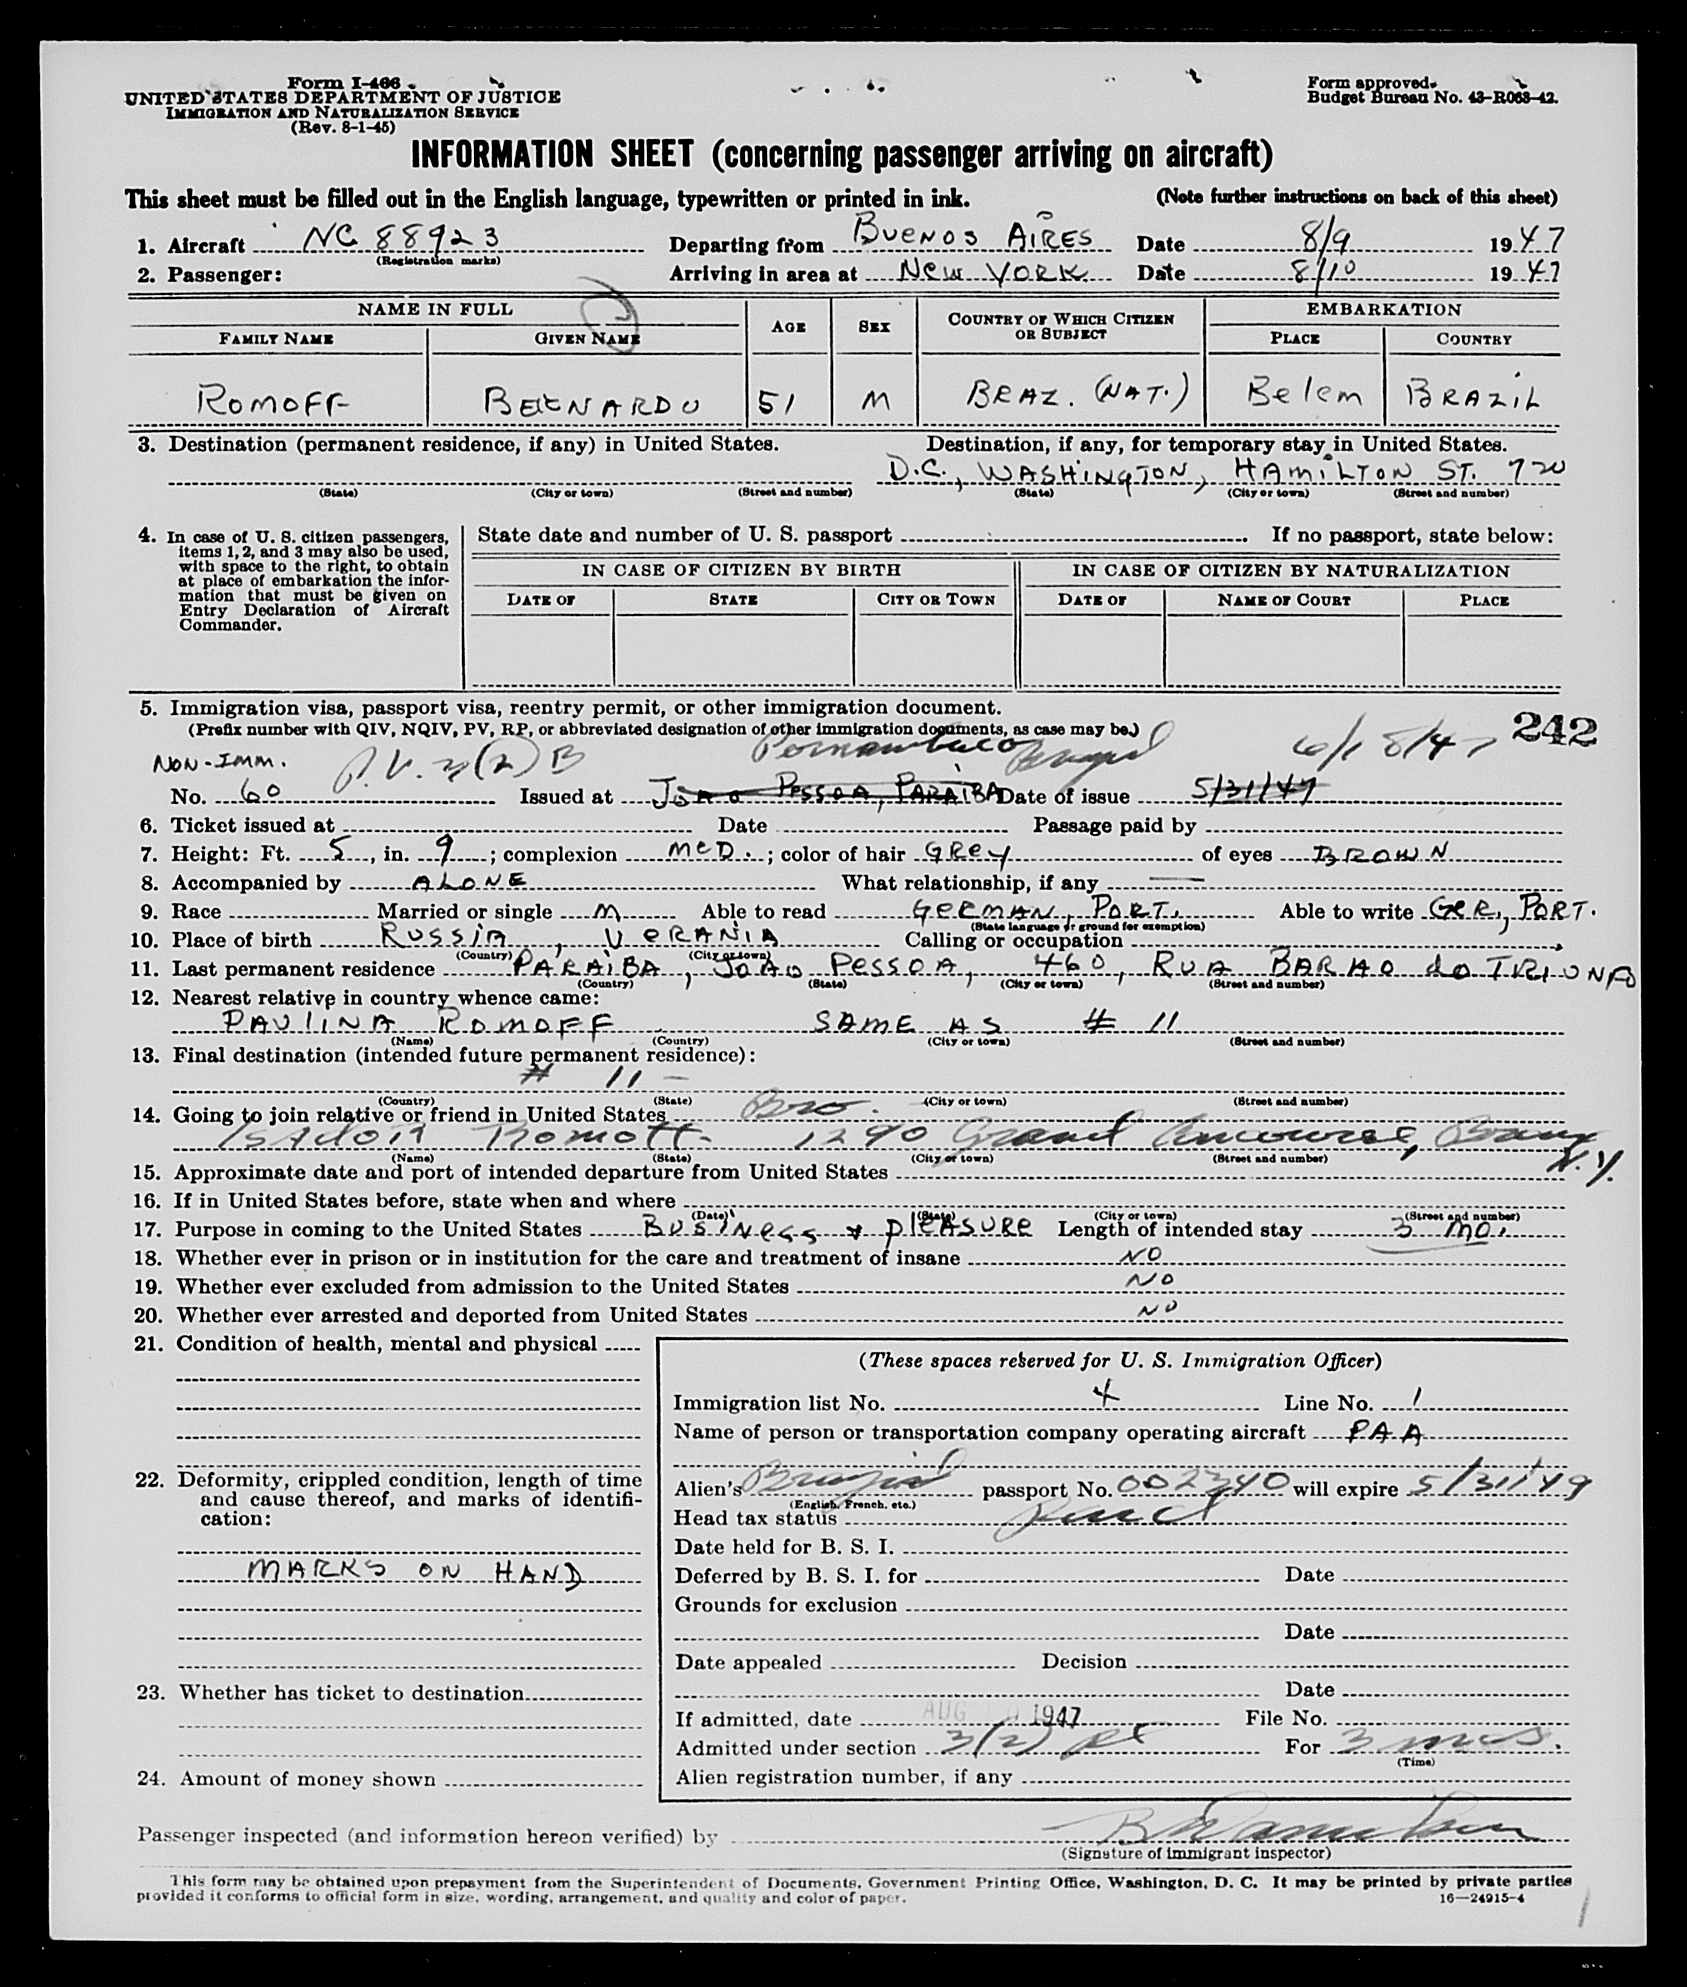 Form I-466
UNITED STATES DEPARTMENT OF JUSTICE
IMMIGRATION AND NATURALIZATION SERVICE
(Rev. 8-1-45)
Form approved.
Budget Bureau No. 43-R063-42.
INFORMATION SHEET (concerning passenger arriving on aircraft)
This sheet must be filled out in the English language, typewritten or printed in ink. (Note further instructions on back of this sheet)
1. Aircraft NC 88923 Departing from BUENOS AIRES Date 8/9 1947
(Registration marks)
2. Passenger: Arriving in area at NEW YORK Date 8/10 1947
NAME IN FULL AGE SEX COUNTRY OF WHICH CITIZEN OR SUBJECT EMBARKATION
FAMILY NAME GIVEN NAME PLACE COUNTRY
ROMOFF BERNARDO 51 M BRAZ. (NAT.) Belem BRAZIL
3. Destination (permanent residence, if any) in United States. Destination, if any, for temporary stay in United States.
D.C., WASHINGTON, HAMILTON ST. 720
(State) (City or town) (Street and number) (State) (City or town) (Street and number)
4. In case of U. S. citizen passengers, items 1, 2, and 3 may also be used, with space to the right, to obtain at place of embarkation the information that must be given on Entry Declaration of Aircraft Commander.
State date and number of U. S. passport If no passport, state below:
IN CASE OF CITIZEN BY BIRTH IN CASE OF CITIZEN BY NATURALIZATION
DATE OF STATE CITY OR TOWN DATE OF NAME OF COURT PLACE
5. Immigration visa, passport visa, reentry permit, or other immigration document.
(Prefix number with QIV, NQIV, PV, RP, or abbreviated designation of other immigration documents, as case may be.)
242
NON-IMM. P.V. 3(2) B Pernambuco Brazil 6/18/47
No. 60 Issued at JOAO PESSOA, PARAIBA Date of issue 5/31/47
6. Ticket issued at Date Passage paid by
7. Height: Ft. 5, in. 9; complexion MED.; color of hair GREY of eyes BROWN
8. Accompanied by ALONE What relationship, if any —
9. Race Married or single M Able to read GERMAN, PORT. Able to write GER., PORT.
(State language or ground for exemption)
10. Place of birth RUSSIA, UCRANIA Calling or occupation
(Country) (City or town)
11. Last permanent residence PARAIBA, JOAO PESSOA, 460, RUA BARAO do TRIUNFO
(Country) (State) (City or town) (Street and number)
12. Nearest relative in country whence came:
PAULINA ROMOFF SAME AS # 11
(Name) (Country) (City or town) (Street and number)
13. Final destination (intended future permanent residence):
# 11 -
(Country) (State) (City or town) (Street and number)
14. Going to join relative or friend in United States Bro.
Isador Romoff 1290 Grand Concourse, Bronx N.Y.
(Name) (State) (City or town) (Street and number)
15. Approximate date and port of intended departure from United States
16. If in United States before, state when and where
(Date) (State) (City or town) (Street and number)
17. Purpose in coming to the United States BUSINESS & PLEASURE Length of intended stay 3 MO.
18. Whether ever in prison or in institution for the care and treatment of insane NO
19. Whether ever excluded from admission to the United States NO
20. Whether ever arrested and deported from United States NO
21. Condition of health, mental and physical
22. Deformity, crippled condition, length of time and cause thereof, and marks of identification:
MARKS ON HAND
23. Whether has ticket to destination
24. Amount of money shown
(These spaces reserved for U. S. Immigration Officer)
Immigration list No. 4 Line No. 1
Name of person or transportation company operating aircraft PAA
Alien's Brazil passport No. 002340 will expire 5/31/49
(English, French, etc.)
Head tax status
Date held for B. S. I.
Deferred by B. S. I. for Date
Grounds for exclusion
Date
Date appealed Decision
Date
If admitted, date AUG 10 1947 File No.
Admitted under section 3(2) For 3 mos.
(Time)
Alien registration number, if any
Passenger inspected (and information hereon verified) by
(Signature of immigrant inspector)
This form may be obtained upon prepayment from the Superintendent of Documents, Government Printing Office, Washington, D. C. It may be printed by private parties
provided it conforms to official form in size, wording, arrangement, and quality and color of paper.
16—24915-4